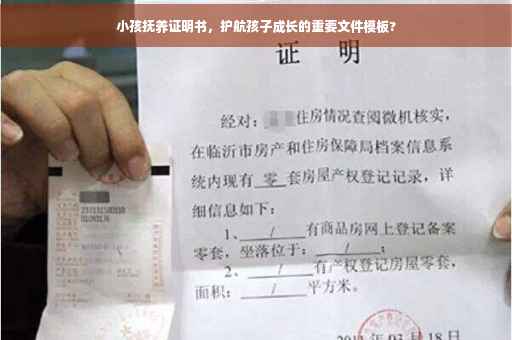 小孩抚养证明书，护航孩子成长的重要文件模板?
证 明
经对： 住房情况查阅微机核实，
在临沂市房产和住房保障局档案信息系
统内现有 零 套房屋产权登记记录，详
细信息如下：
1、 / 有商品房网上登记备案
零套，坐落位于： / ；
2、 / 有产权登记房屋零套，
面积： / 平方米。
03 月 18 日